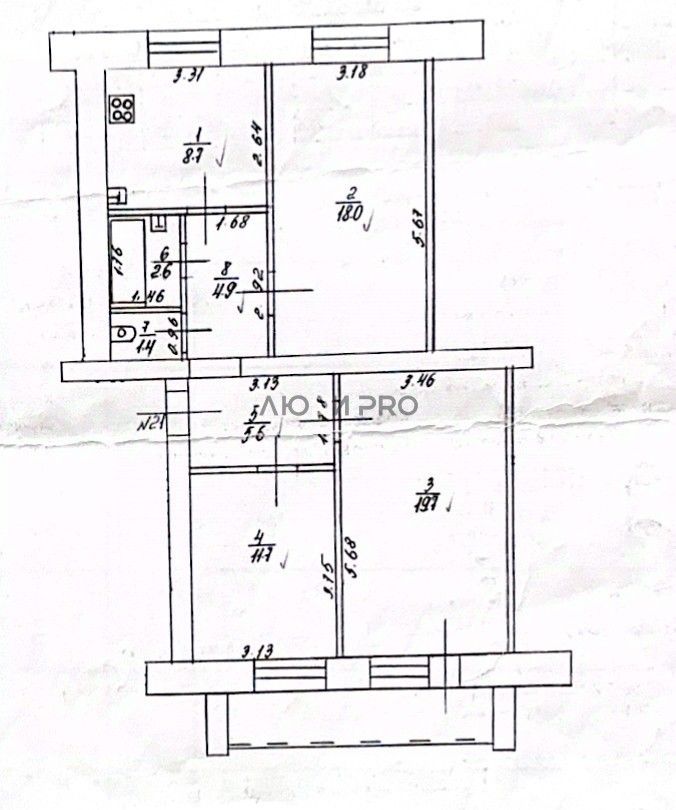 3.31
3.18
1
8.7
2.64
2
18.0
5.67
1.68
1.76
6
2.6
1.46
8
4.9
2.92
7
1.4
0.96
3.13
3.46
ЛЮДИ PRO
№21
5
5.6
1.78
3
19.7
4
11.7
3.75
5.68
3.13